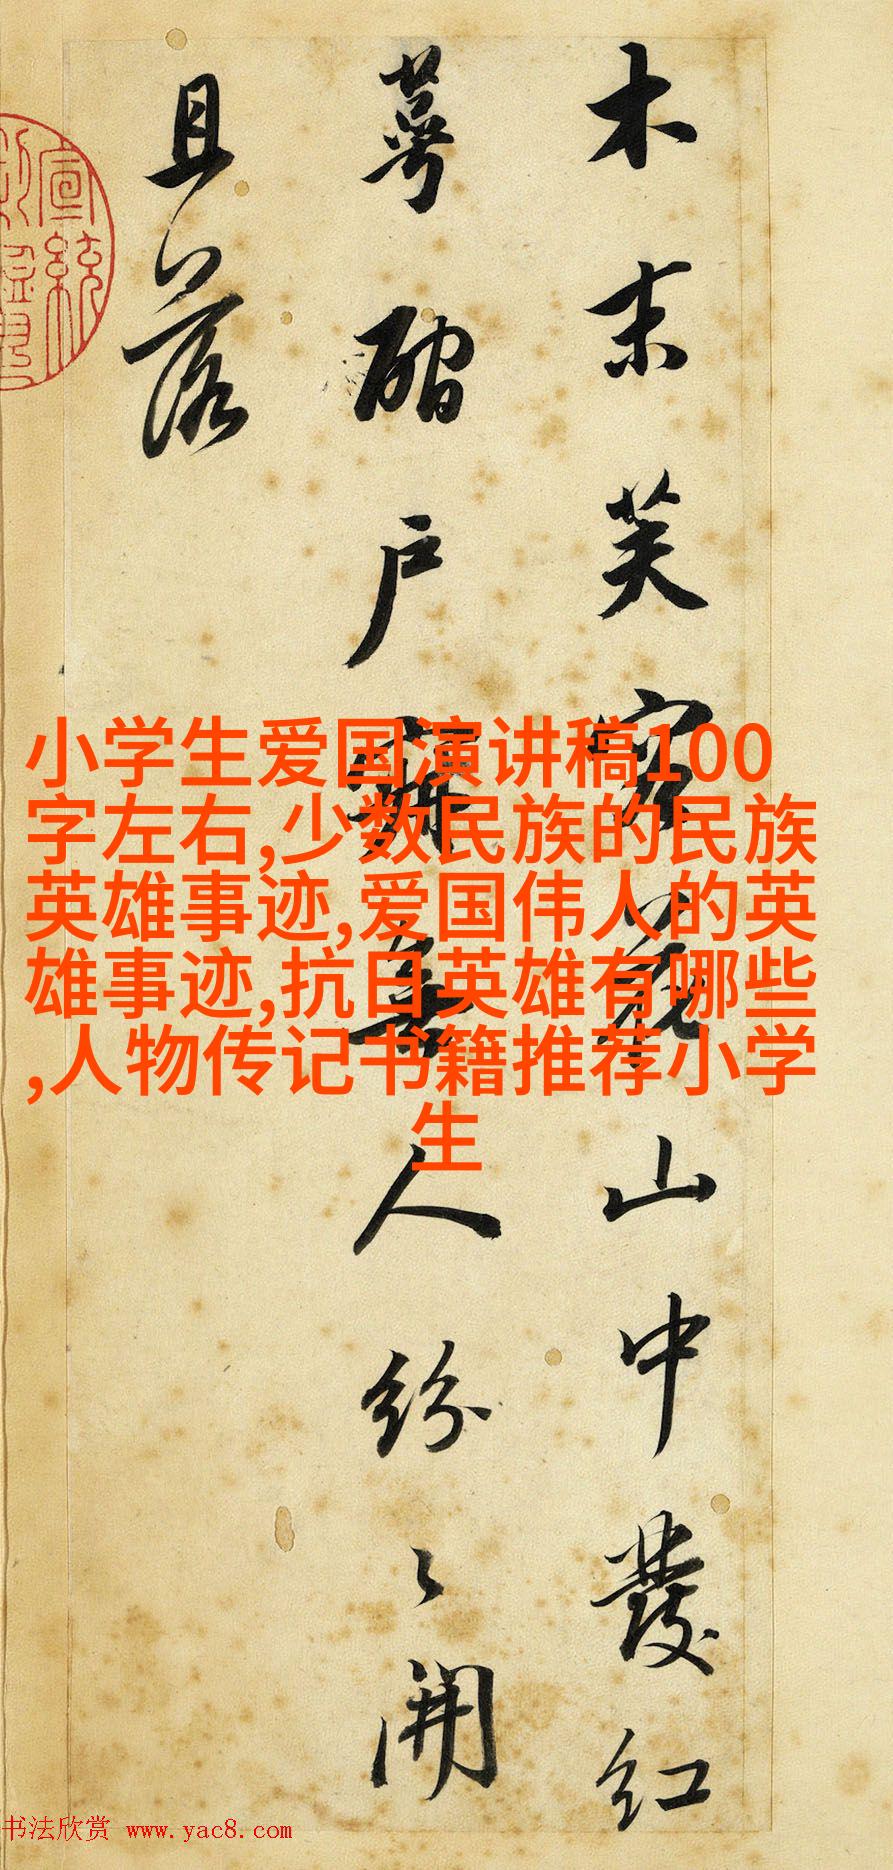 木末芙蓉花山中發紅
萼磵戶寂無人紛〻開
且落
宣統
小学生爱国演讲稿100
字左右,少数民族的民族
英雄事迹,爱国伟人的英
雄事迹,抗日英雄有哪些
,人物传记书籍推荐小学
生
书法欣赏 www.yac8.com